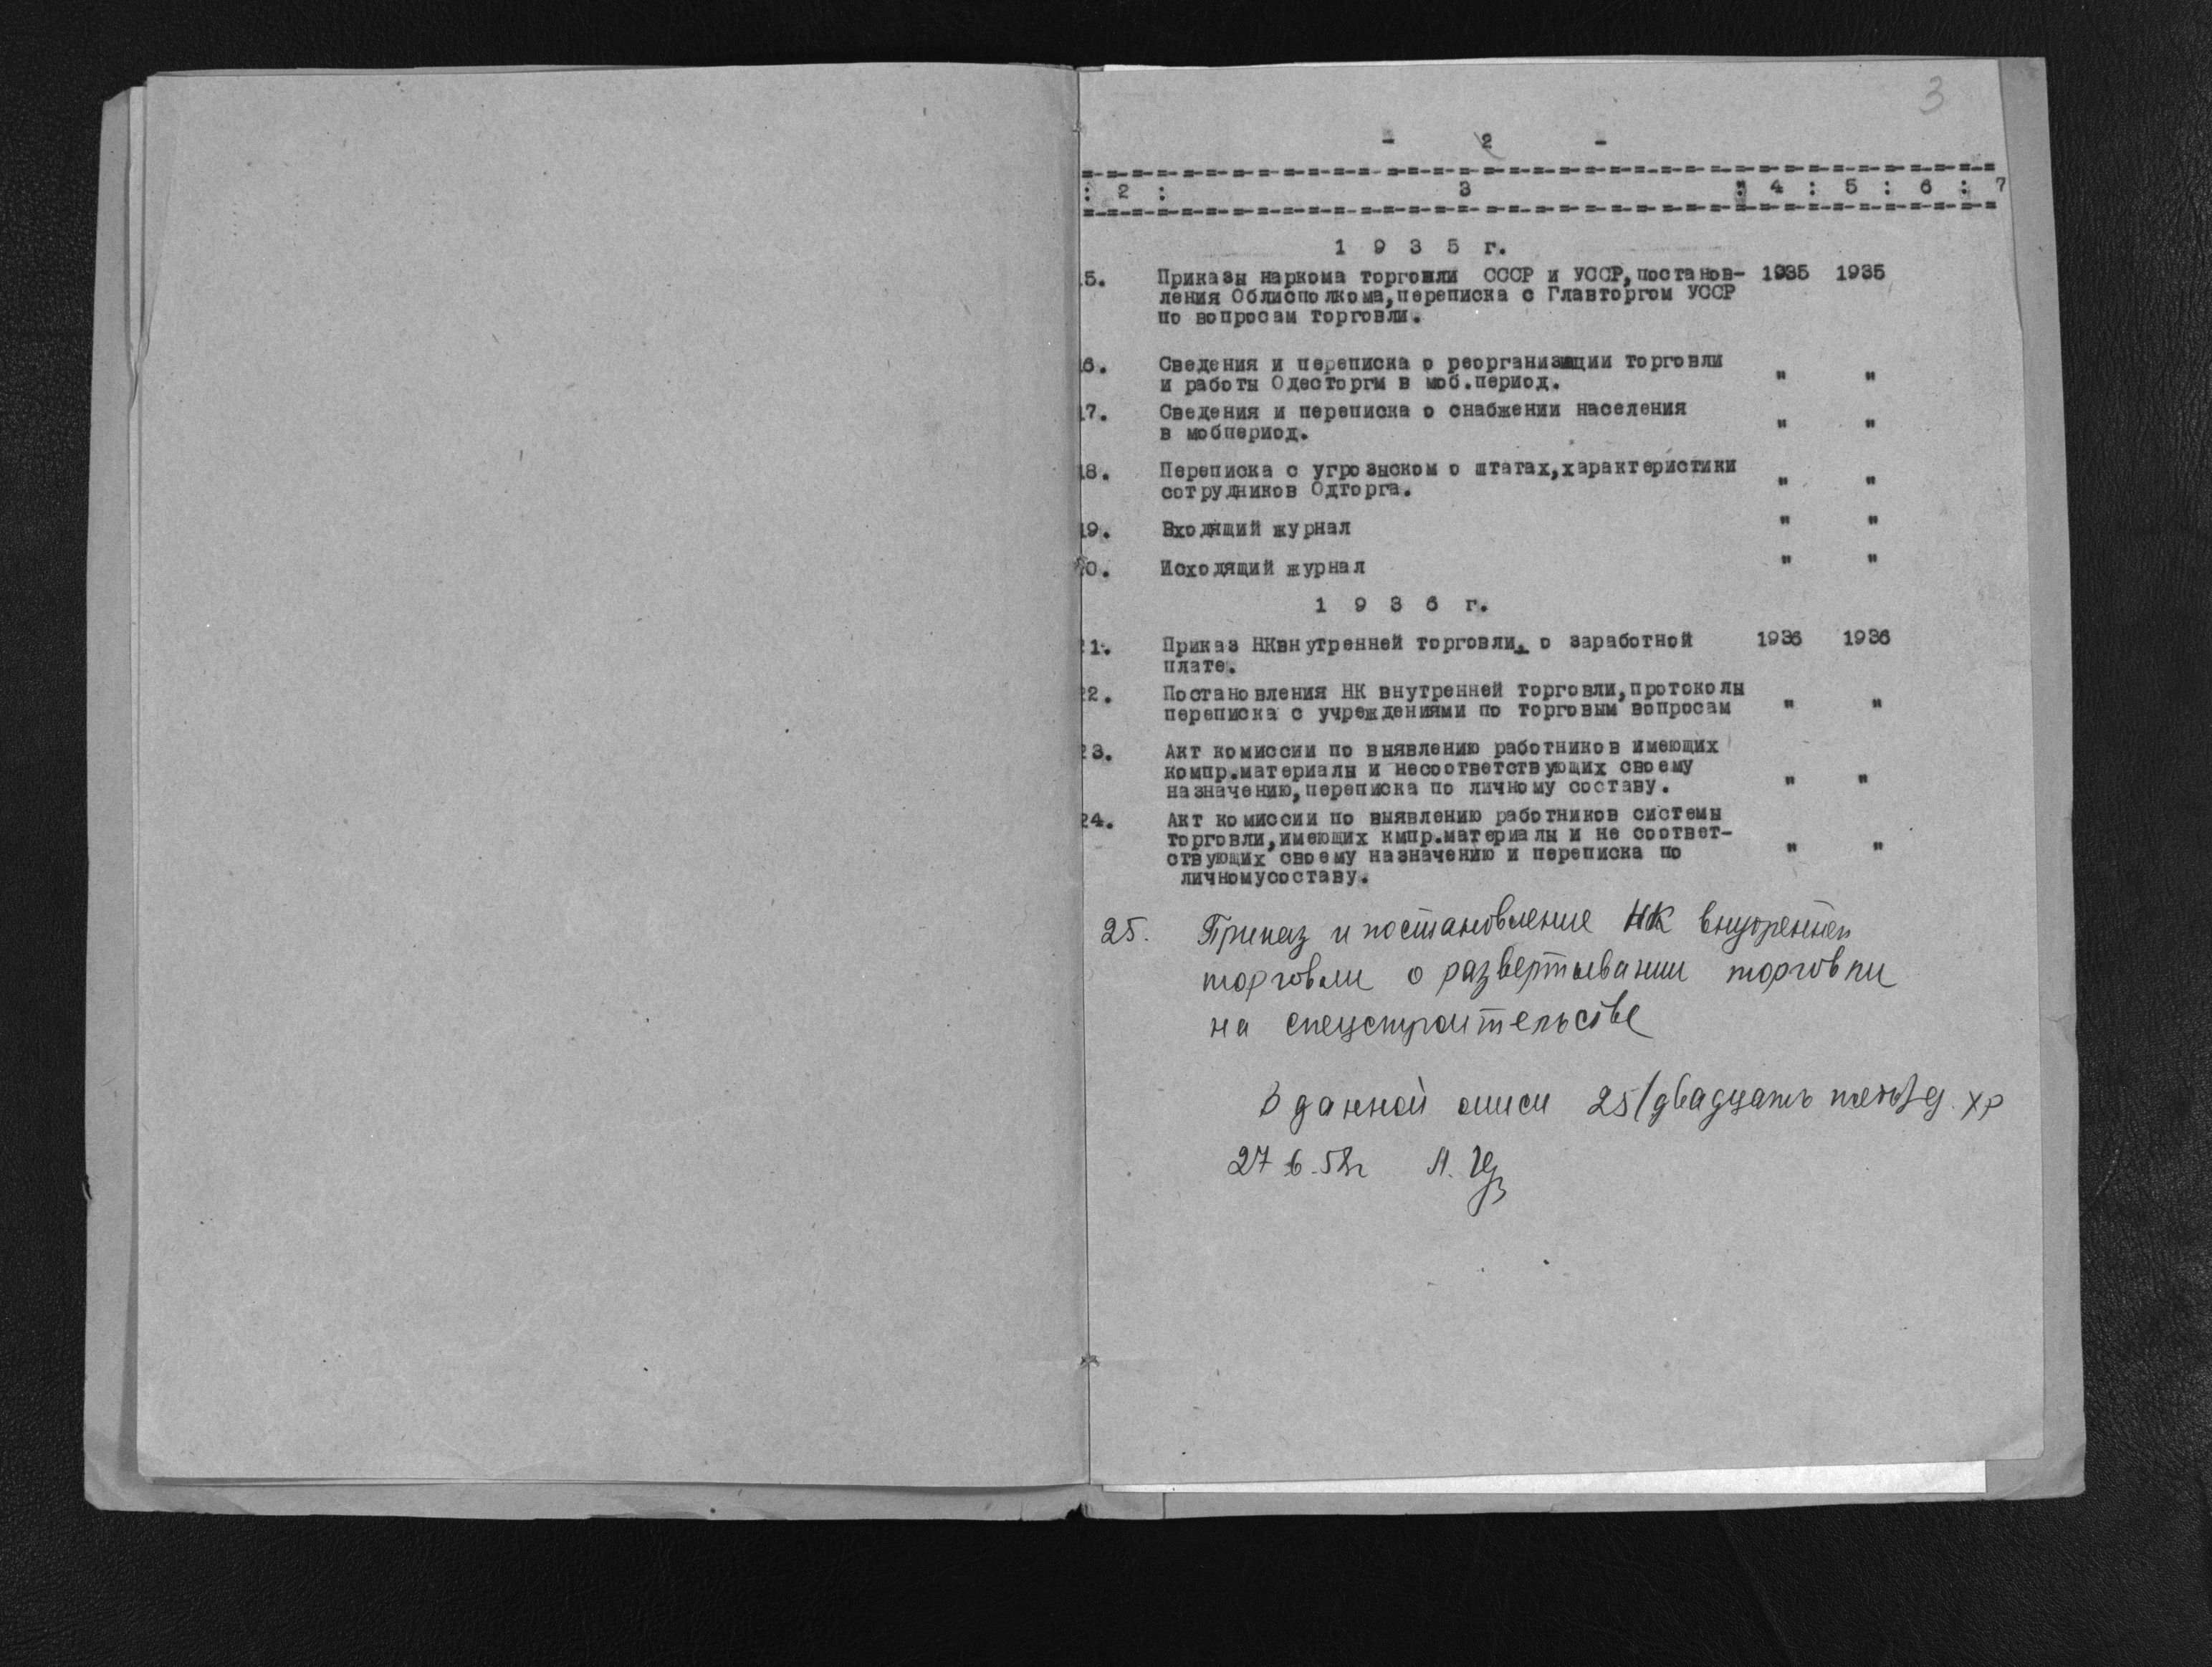 3
- 2 -
=-=-=-=-=-=-=-=-=-=-=-=-=-=-=-=-=-=-=-=-=-=-=-=-=-=-=-=-=-=-=-=-=-=-=-=
: 2 : 3 : 4 : 5 : 6 : 7
=-=-=-=-=-=-=-=-=-=-=-=-=-=-=-=-=-=-=-=-=-=-=-=-=-=-=-=-=-=-=-=-=-=-=-=
1 9 3 5 г.
15. Приказы наркома торговли СССР и УССР,постанов- 1935 1935
ления Облисполкома,переписка с Главторгом УССР
по вопросам торговли.
16. Сведения и переписка о реорганизиции торговли
и работы Одесторгы в моб.период. " "
17. Сведения и переписка о снабжении населения
в мобпериод. " "
18. Переписка с угрозыском о штатах,характеристики
сотрудников Одторга. " "
19. Входящий журнал " "
20. Исходящий журнал " "
1 9 3 6 г.
21. Приказ НКвнутренней торговли. о заработной 1936 1936
плате.
22. Постановления НК внутренней торговли,протоколы
переписка с учреждениями по торговым вопросам " "
23. Акт комиссии по выявлению работников имеющих
компр.материалы и несоответствующих своему
назначению,переписка по личному составу. " "
24. Акт комиссии по выявлению работников системы
торговли,имеющих кмпр.материалы и не соответ-
ствующих своему назначению и переписка по " "
личномусоставу.
25. Приказ и постановление НК внутренней
торговли о развертывании торговли
на спецстроительстве
В данной описи 25/двадцать пять/ед. хр
27 6.58г Л.